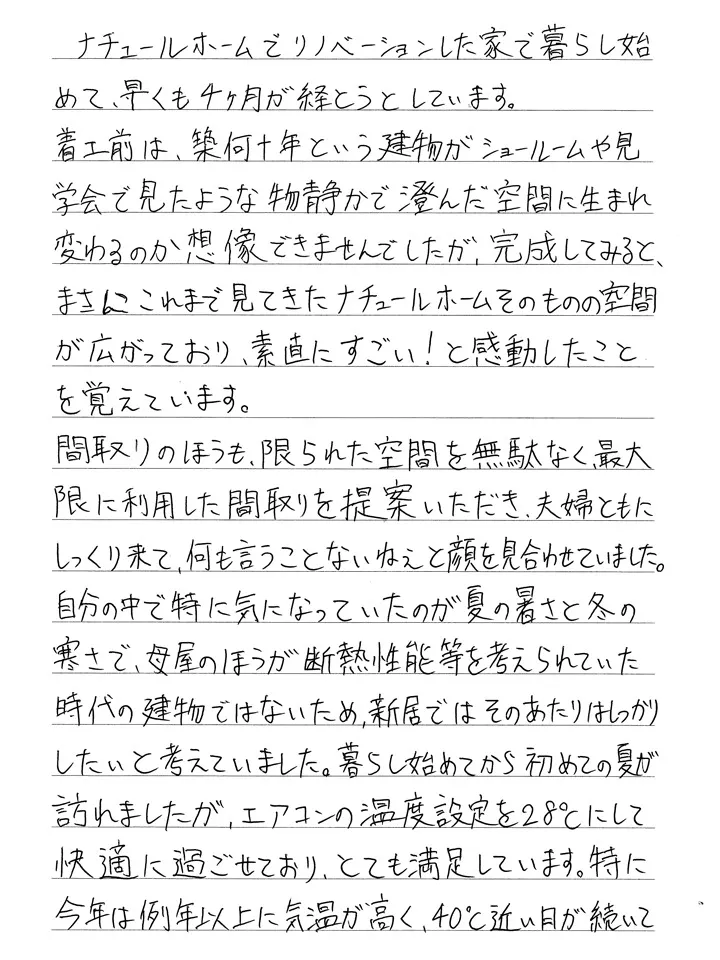 ナチュールホームでリノベーションした家で暮らし始
めて、早くも4ヶ月が経とうとしています。
着工前は、築何十年という建物がショールームや見
学会で見たような物静かで澄んだ空間に生まれ
変わるのか想像できませんでしたが、完成してみると、
まさにこれまで見てきたナチュールホームそのものの空間
が広がっており、素直にすごい！と感動したこと
を覚えています。
間取りのほうも、限られた空間を無駄なく、最大
限に利用した間取りを提案いただき、夫婦ともに
しっくり来て、何も言うことないねぇと顔を見合わせていました。
自分の中で特に気になっていたのが夏の暑さと冬の
寒さで、母屋のほうが断熱性能等を考えられていた
時代の建物ではないため、新居ではそのあたりはしっかり
したいと考えていました。暮らし始めてから初めての夏が
訪れましたが、エアコンの温度設定を28℃にして
快適に過ごせており、とても満足しています。特に
今年は例年以上に気温が高く、40℃近い日が続いて